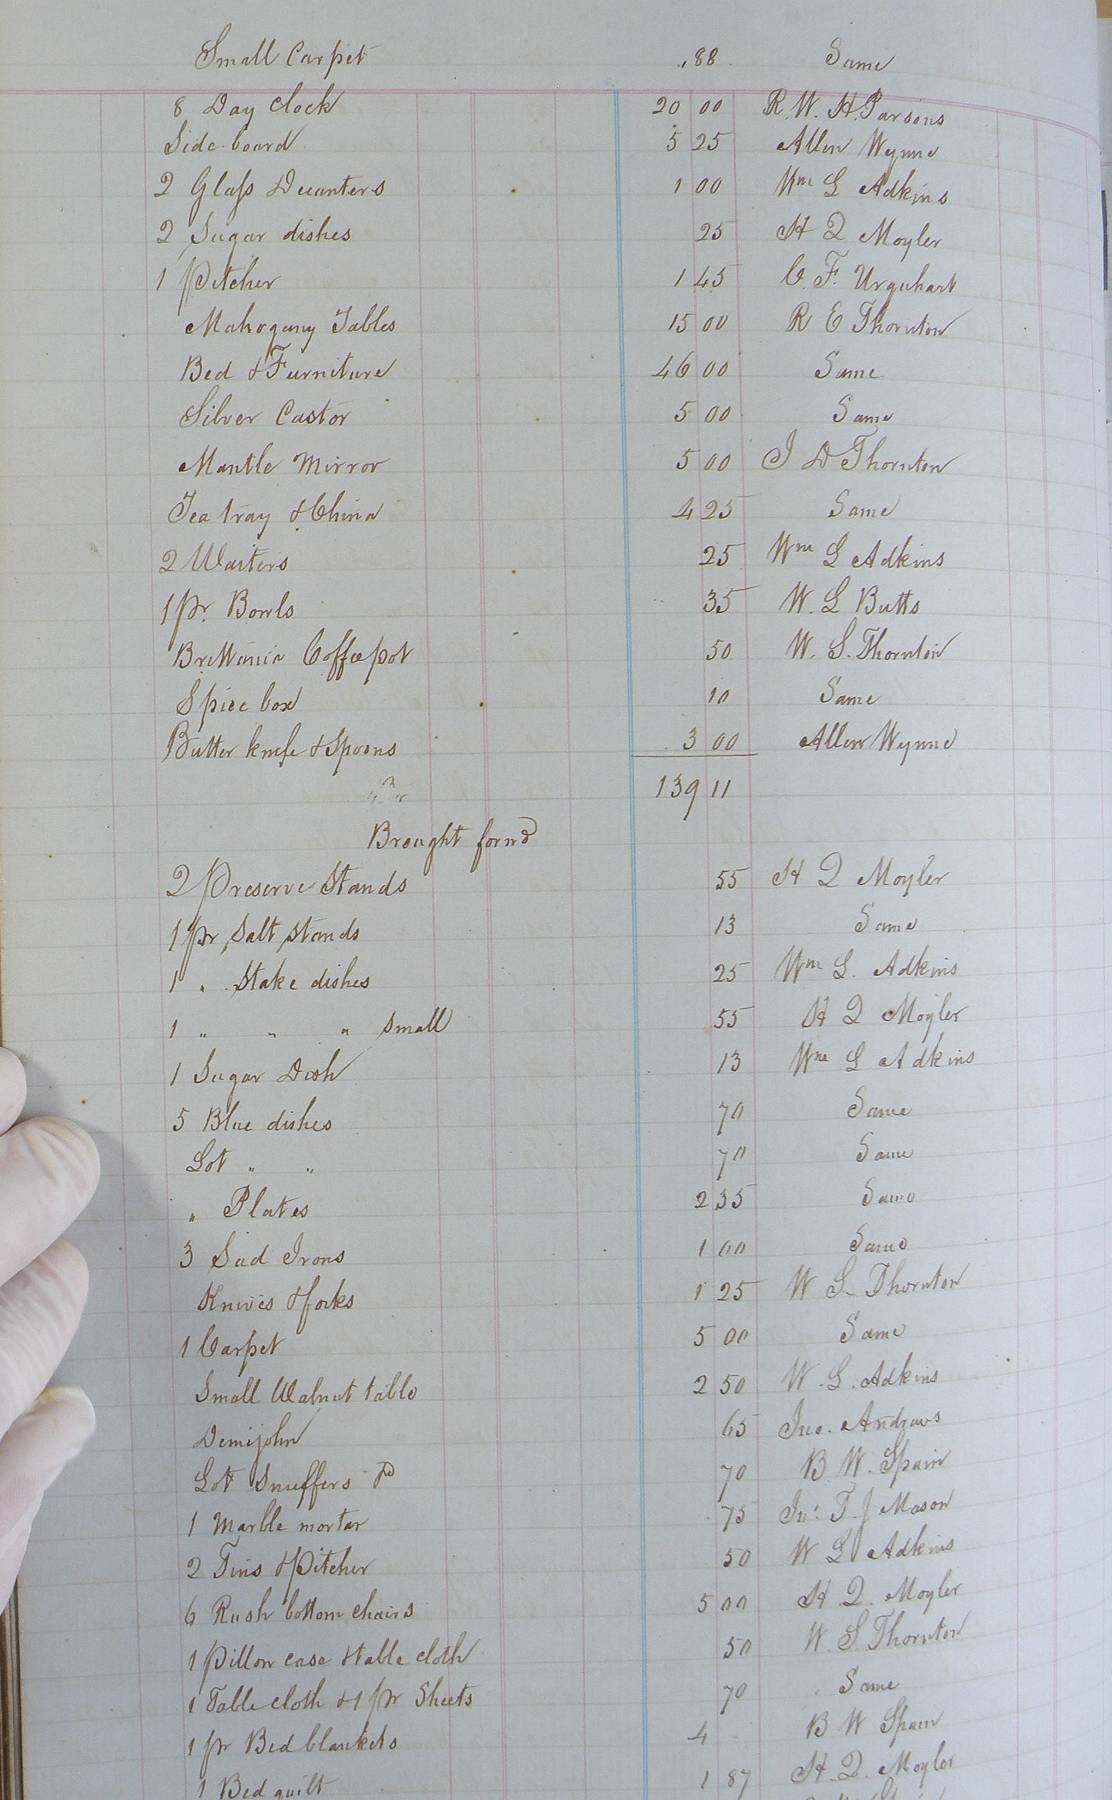 Small Carpet ,,88 Same
8 Day Clock 20 00 R. W. H. Parsons
Side board 5 25 Allen Wynne
2 Glass Decanters 1 00 Wm L Adkins
2 Sugar dishes 25 H Q Moyler
1 Pitcher 1 45 C. F. Urquhart
Mahogany Tables 15 00 R E Thornton
Bed & Furniture 46 00 Same
Silver Castor 5 00 Same
Mantle Mirror 5 00 J D Thornton
Tea tray & China 4 25 Same
2 Waiters 25 Wm L Adkins
1 pr. Bowls 35 W. L Butts
Brittania Coffeepot 50 W. S. Thornton
Spice box 10 Same
Butter knife & Spoons 3 00 Allen Wynne
139 11
Brought forwd
2 Preserve Stands 55 H Q Moyler
1 pr Salt Stands 13 Same
1 " Stake dishes 25 Wm L. Adkins
1 " " " small 55 H Q Moyler
1 Sugar Dish 13 Wm L Adkins
5 Blue dishes 70 Same
Lot " " 70 Same
" Plates 2 35 Same
3 Sad Irons 1 00 Same
Knives & forks 1 25 W S Thornton
1 Carpet 5 00 Same
Small Walnut table 2 50 W. L. Adkins
Demijohn 65 Jno. Andrews
Lot Snuffers 70 B. W. Spain
1 Marble mortar 75 Mason
2 Tins & Pitcher 50 W L Adkins
6 Rush bottom chairs 5 00 H Q. Moyler
1 Pillow case & table cloth 50 W S Thornton
1 Table cloth & 1 pr Sheets 70 Same
1 pr Bed blankets 4 B W Spain
1 Bed quilt 1 87 H. Q. Moyler